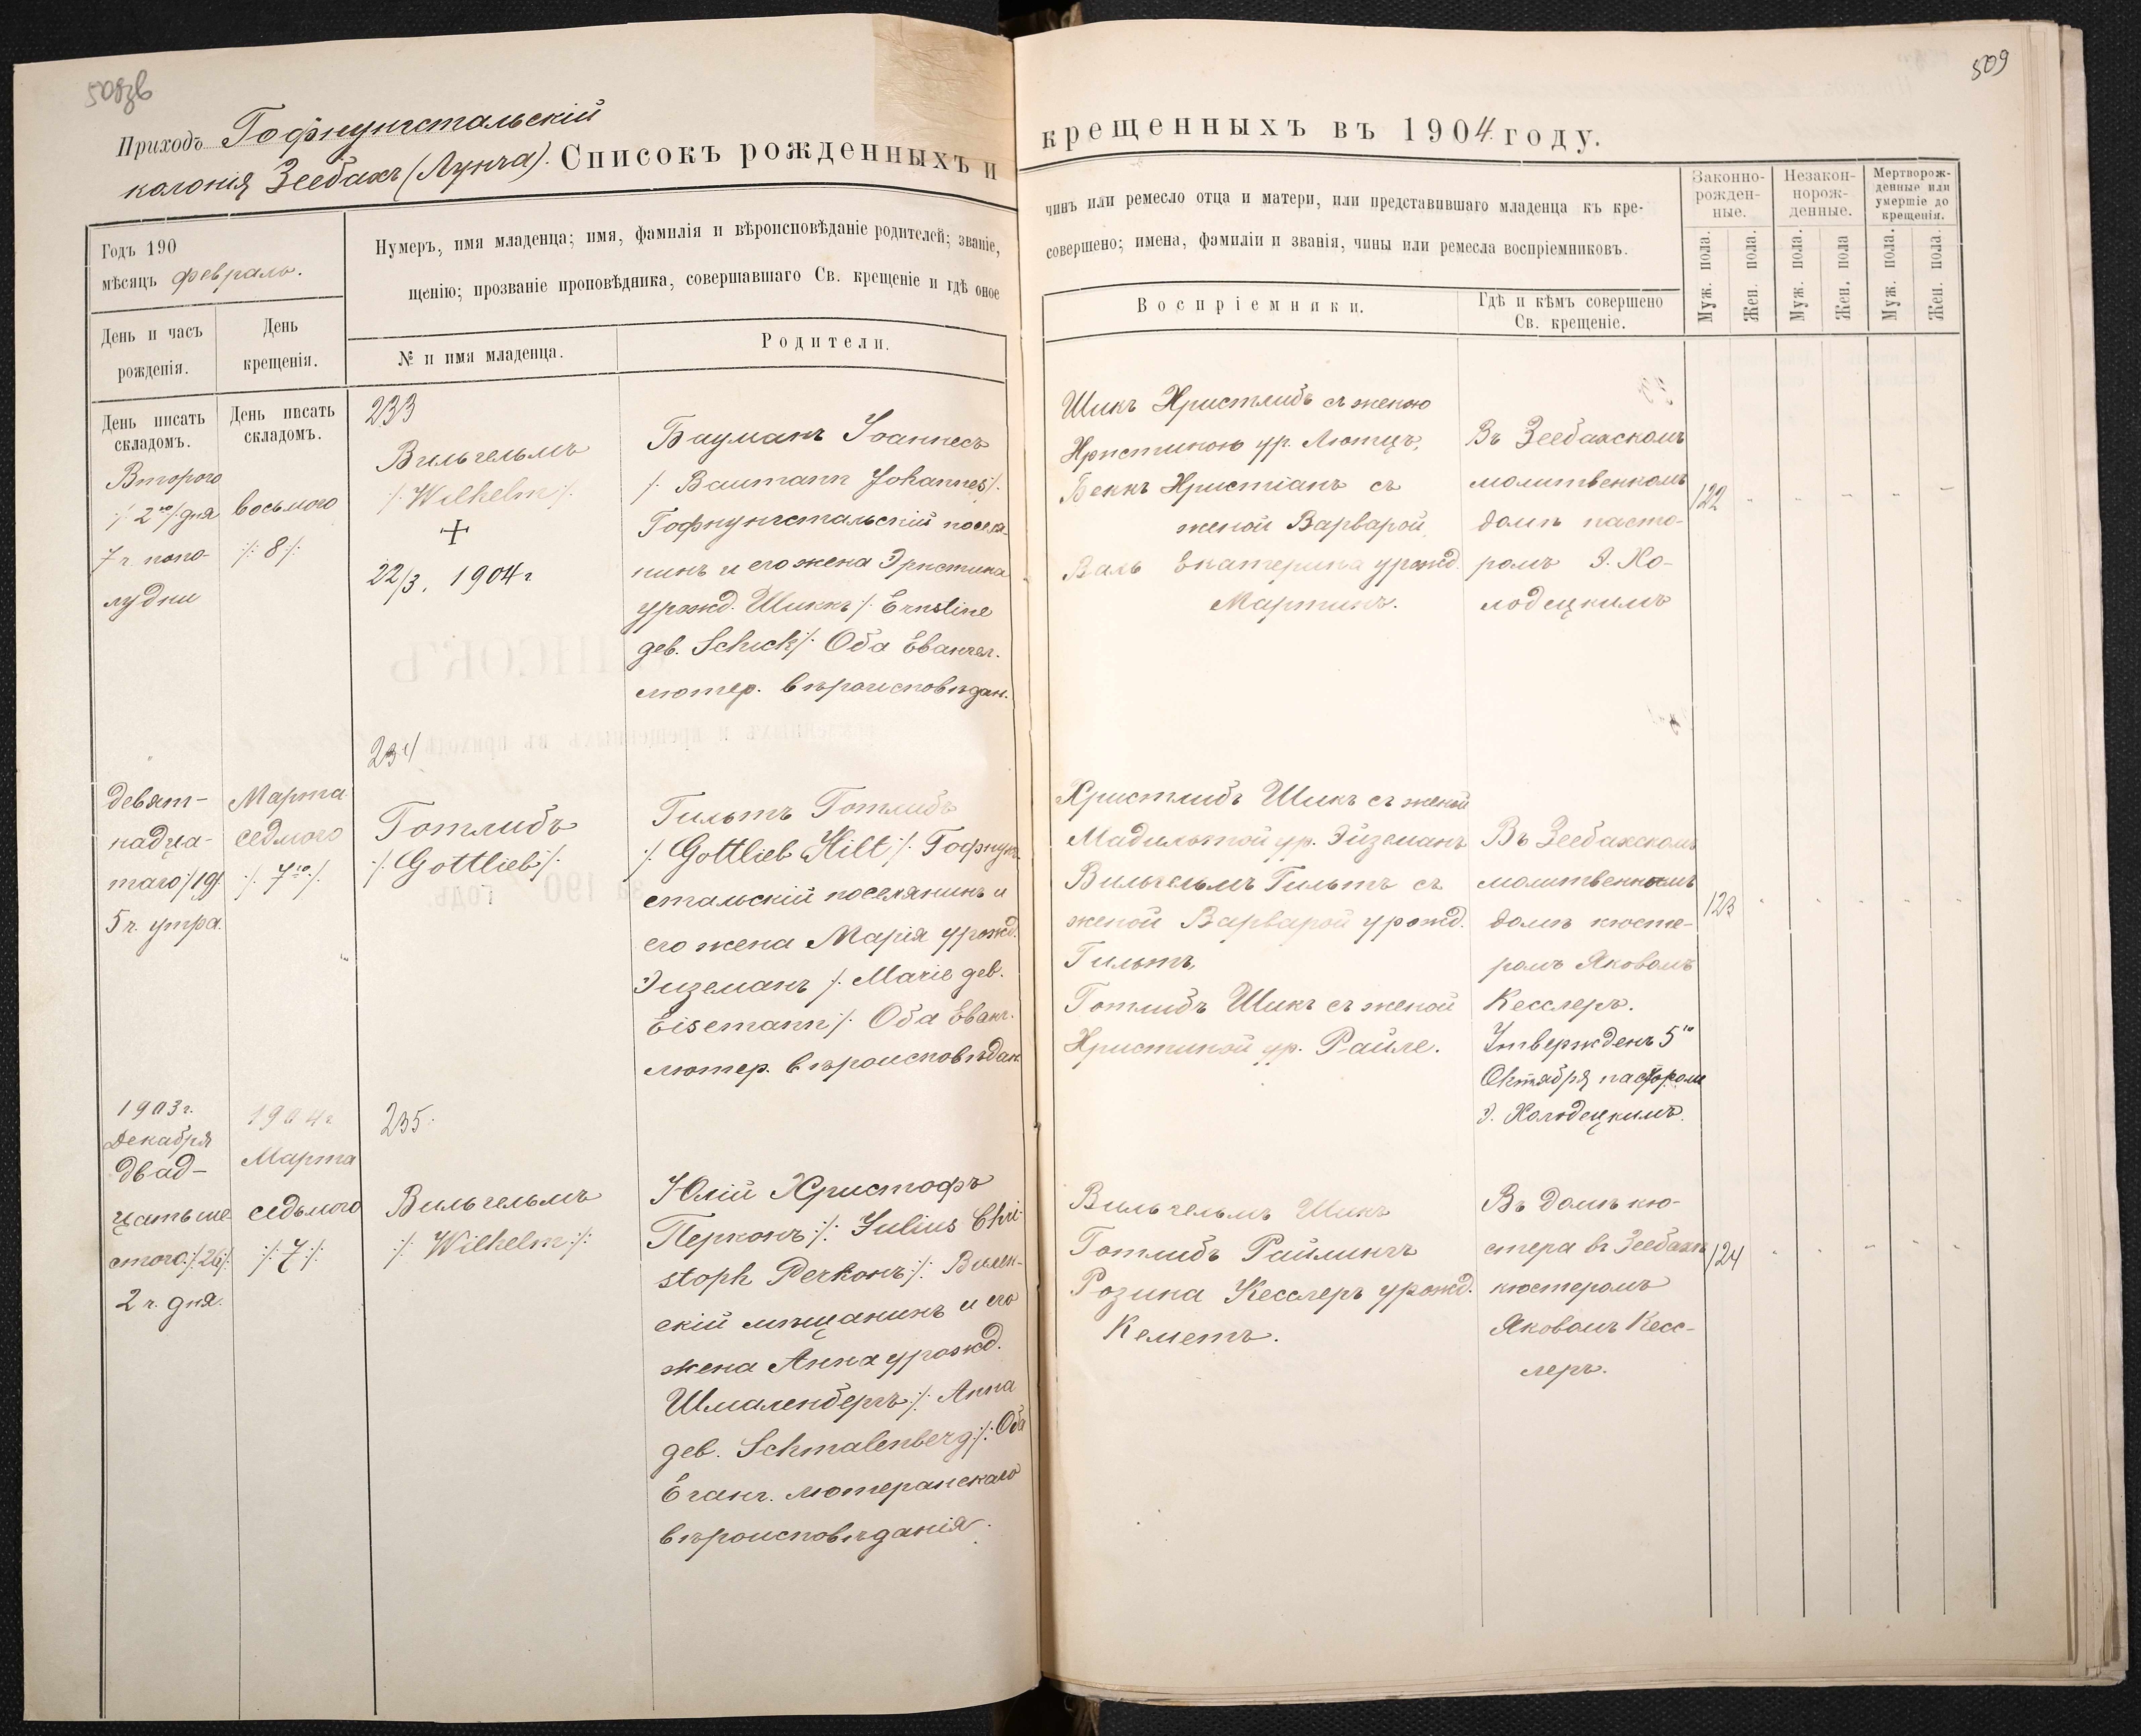 508зв
509
Приходъ Гофнунгстальскій
колонія Зеебахъ (Лунга). Списокъ рожденныхъ и
крещенныхъ въ 1904 году.
Годъ 190
мѣсяцъ февраль.
Нумеръ, имя младенца; имя, фамилія и вѣроисповѣданіе родителей; званіе,
щенію; прозваніе проповѣдника, совершавшаго Св. крещеніе и гдѣ оное
День и часъ
рожденія.
День
крещенія.
№ и имя младенца.
Родители.
чинъ или ремесло отца и матери, или представившаго младенца къ кре-
совершено; имена, фамиліи и званія, чины или ремесла воспріемниковъ.
Воспріемники.
Гдѣ и кѣмъ совершено
Св. крещеніе.
Законно-
рожден-
ные.
Незакон-
норож-
денные.
Мертворож-
денные или
умершіе до
крещенія.
Муж. пола.
Жен. пола.
Муж. пола.
Жен. пола
Муж. пола.
Жен. пола.
День писать
складомъ.
День писать
складомъ.
Второго
/: 2го/: дня
7 ч. попо-
лудни
восьмого
/: 8 /:
233
Вильгельмъ
/: Wilhelm /:
+
22/3, 1904 г
Бауманъ Іоаннесъ
/: Baumann Johannes/:
Гофнунгстальскій поселя-
нинъ и его жена Эрнстина
урожд. Шиккъ /: Ernstine
дев. Schick/: Оба Евангел.
лютер. вѣроисповѣдан.
Шикъ Христлибъ съ женою
Христиною ур. Лютцъ,
Беккъ Христіанъ съ
женой Варварой,
Валь Екатерина урожд.
Мартинъ.
Въ Зеебахскомъ
молитвенномъ
домѣ пасто-
ромъ Э. Хо-
лодецкимъ
122
девят-
надца-
таго /19/.
5 ч. утра.
Марта
седмого
/: 7го /:
234
Готлибъ
/: Gottlieb /:
Гильтъ Готлибъ
/: Gottlieb Hilt /: Гофнунг-
стальскій поселянинъ и
его жена Марія урожд.
Эиземанъ /: Marie дев.
Eisemann /: Оба Еванг.
лютер. вѣроисповѣдан.
Христлибъ Шикъ съ женой
Мадильтой ур. Эйземанъ
Вильгельмъ Гильтъ съ
женой Варварой урожд.
Гильтъ,
Готлибъ Шикъ съ женой
Христиной ур. Райле.
Въ Зеебахскомъ
молитвенномъ
домѣ кюсте-
ромъ Яковомъ
Кесслеръ.
Утвержденъ 5го
Октября пасторомъ
Э. Холодецкимъ.
123
1903 г.
Декабря
двад-
цать ше-
стого /: 26/:
2 ч. дня.
1904 г
Марта
седьмого
/: 7 /:
235.
Вильгельмъ
/: Wilhelm /:
Юлій Христофъ
Перконъ /: Julius Chri-
stoph Perkonъ /: Вилен-
скій мѣщанинъ и его
жена Анна урожд.
Шмаленбергъ /: Anna
дев. Schmalenberg /: Оба
Еванг. лютеранскаго
вѣроисповѣданія.
Вильгельмъ Шикъ
Готлибъ Райлингъ
Розина Кесслеръ урожд.
Кеметъ.
Въ домѣ кю-
стера въ Зеебахѣ
кюстеромъ
Яковомъ Кесс-
леръ.
124